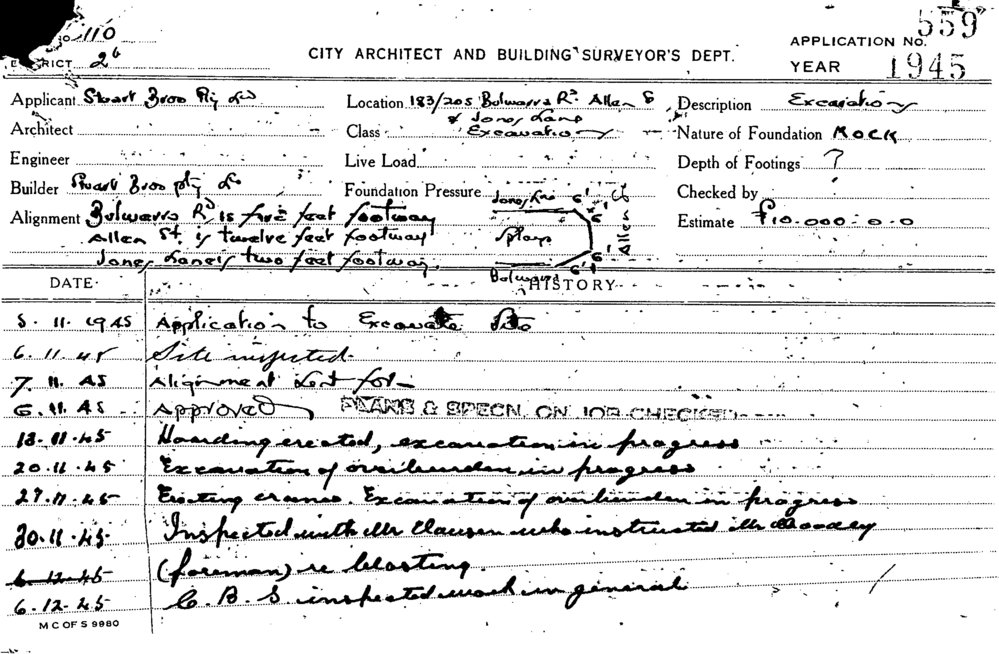 No 110
DISTRICT 26
CITY ARCHITECT AND BUILDING SURVEYOR'S DEPT.
APPLICATION No. 559
YEAR 1945
Applicant Stuart Bros Pty Ld
Location 183/205 Bulwarra Rd. Allen St
& Jones Lane
Description Excavation
Architect
Class Excavation
Nature of Foundation ROCK
Engineer
Live Load
Depth of Footings ?
Builder Stuart Bros Pty Ld
Foundation Pressure
Checked by
Alignment Bulwarra Rd is five feet footway
Allen St. is twelve feet footway
Jones Lane is two feet footway.
Estimate £10.000-0-0
Jones Lne 6'1 6'1
Splays
Allen St
Bulwarra 6'1 6'
DATE
HISTORY
5.11.1945 Application to Excavate Site
6.11.45 Site inspected.
7.11.45 Alignment Sent for
6.11.45 APPROVED PLANS & SPECN. ON JOB CHECKED
13.11.45 Hoarding erected, excavation in progress
20.11.45 Excavation of overburden in progress
27.11.45 Erecting cranes. Excavation of overburden in progress
30.11.45 Inspected with Mr Clausen who instructed Mr
6.12.45 (foreman) re blasting.
6.12.45 C.B.S. inspected work in general
M C OF S 9980